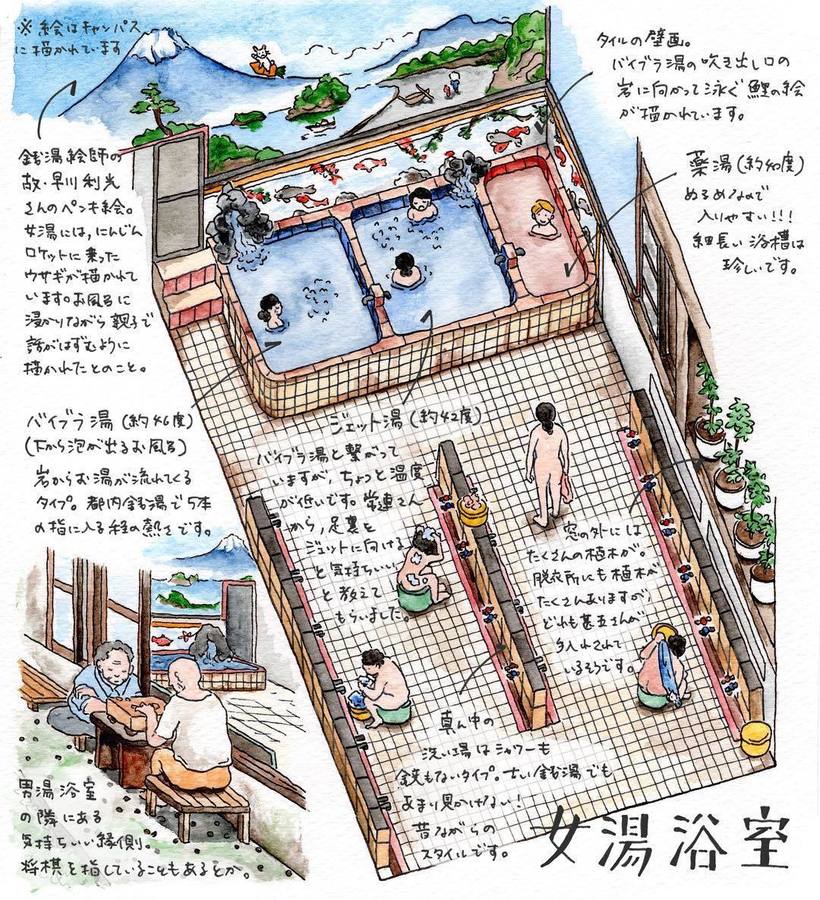 ※ 絵はキャンバス
に描かれています
銭湯絵師の
故・早川利光
さんのペンキ絵。
女湯には、にんじん
ロケットに乗った
ウサギが描かれて
います。お風呂に
浸かりながら親子で
話がはずむように
描かれたとのこと。
タイルの壁画。
バイブラ湯の吹き出し口の
岩に向かって泳ぐ鯉の絵
が描かれています。
薬湯(約40度)
ぬるめなので
入りやすい!!!
細長い浴槽は
珍しいです。
バイブラ湯(約46度)
(下から泡が出るお風呂)
岩からお湯が流れてくる
タイプ。都内銭湯で5本
の指に入る程の熱さです。
ジェット湯(約42度)
バイブラ湯と繋がって
いますが、ちょっと温度
が低いです。常連さん
から、足裏を
ジェットに向ける
と気持ちいい
と教えて
もらいました。
窓の外には
たくさんの植木が。
脱衣所にも植木が
たくさんありますが、
どれも甚五さんが
手入れされて
いるそうです。
真ん中の
洗い場はシャワーも
鏡もないタイプ。古い銭湯でも
あまり見かけない!
昔ながらの
スタイルです。
男湯浴室
の隣にある
気持ちいい縁側。
将棋を指していることもあるとか。
女湯浴室